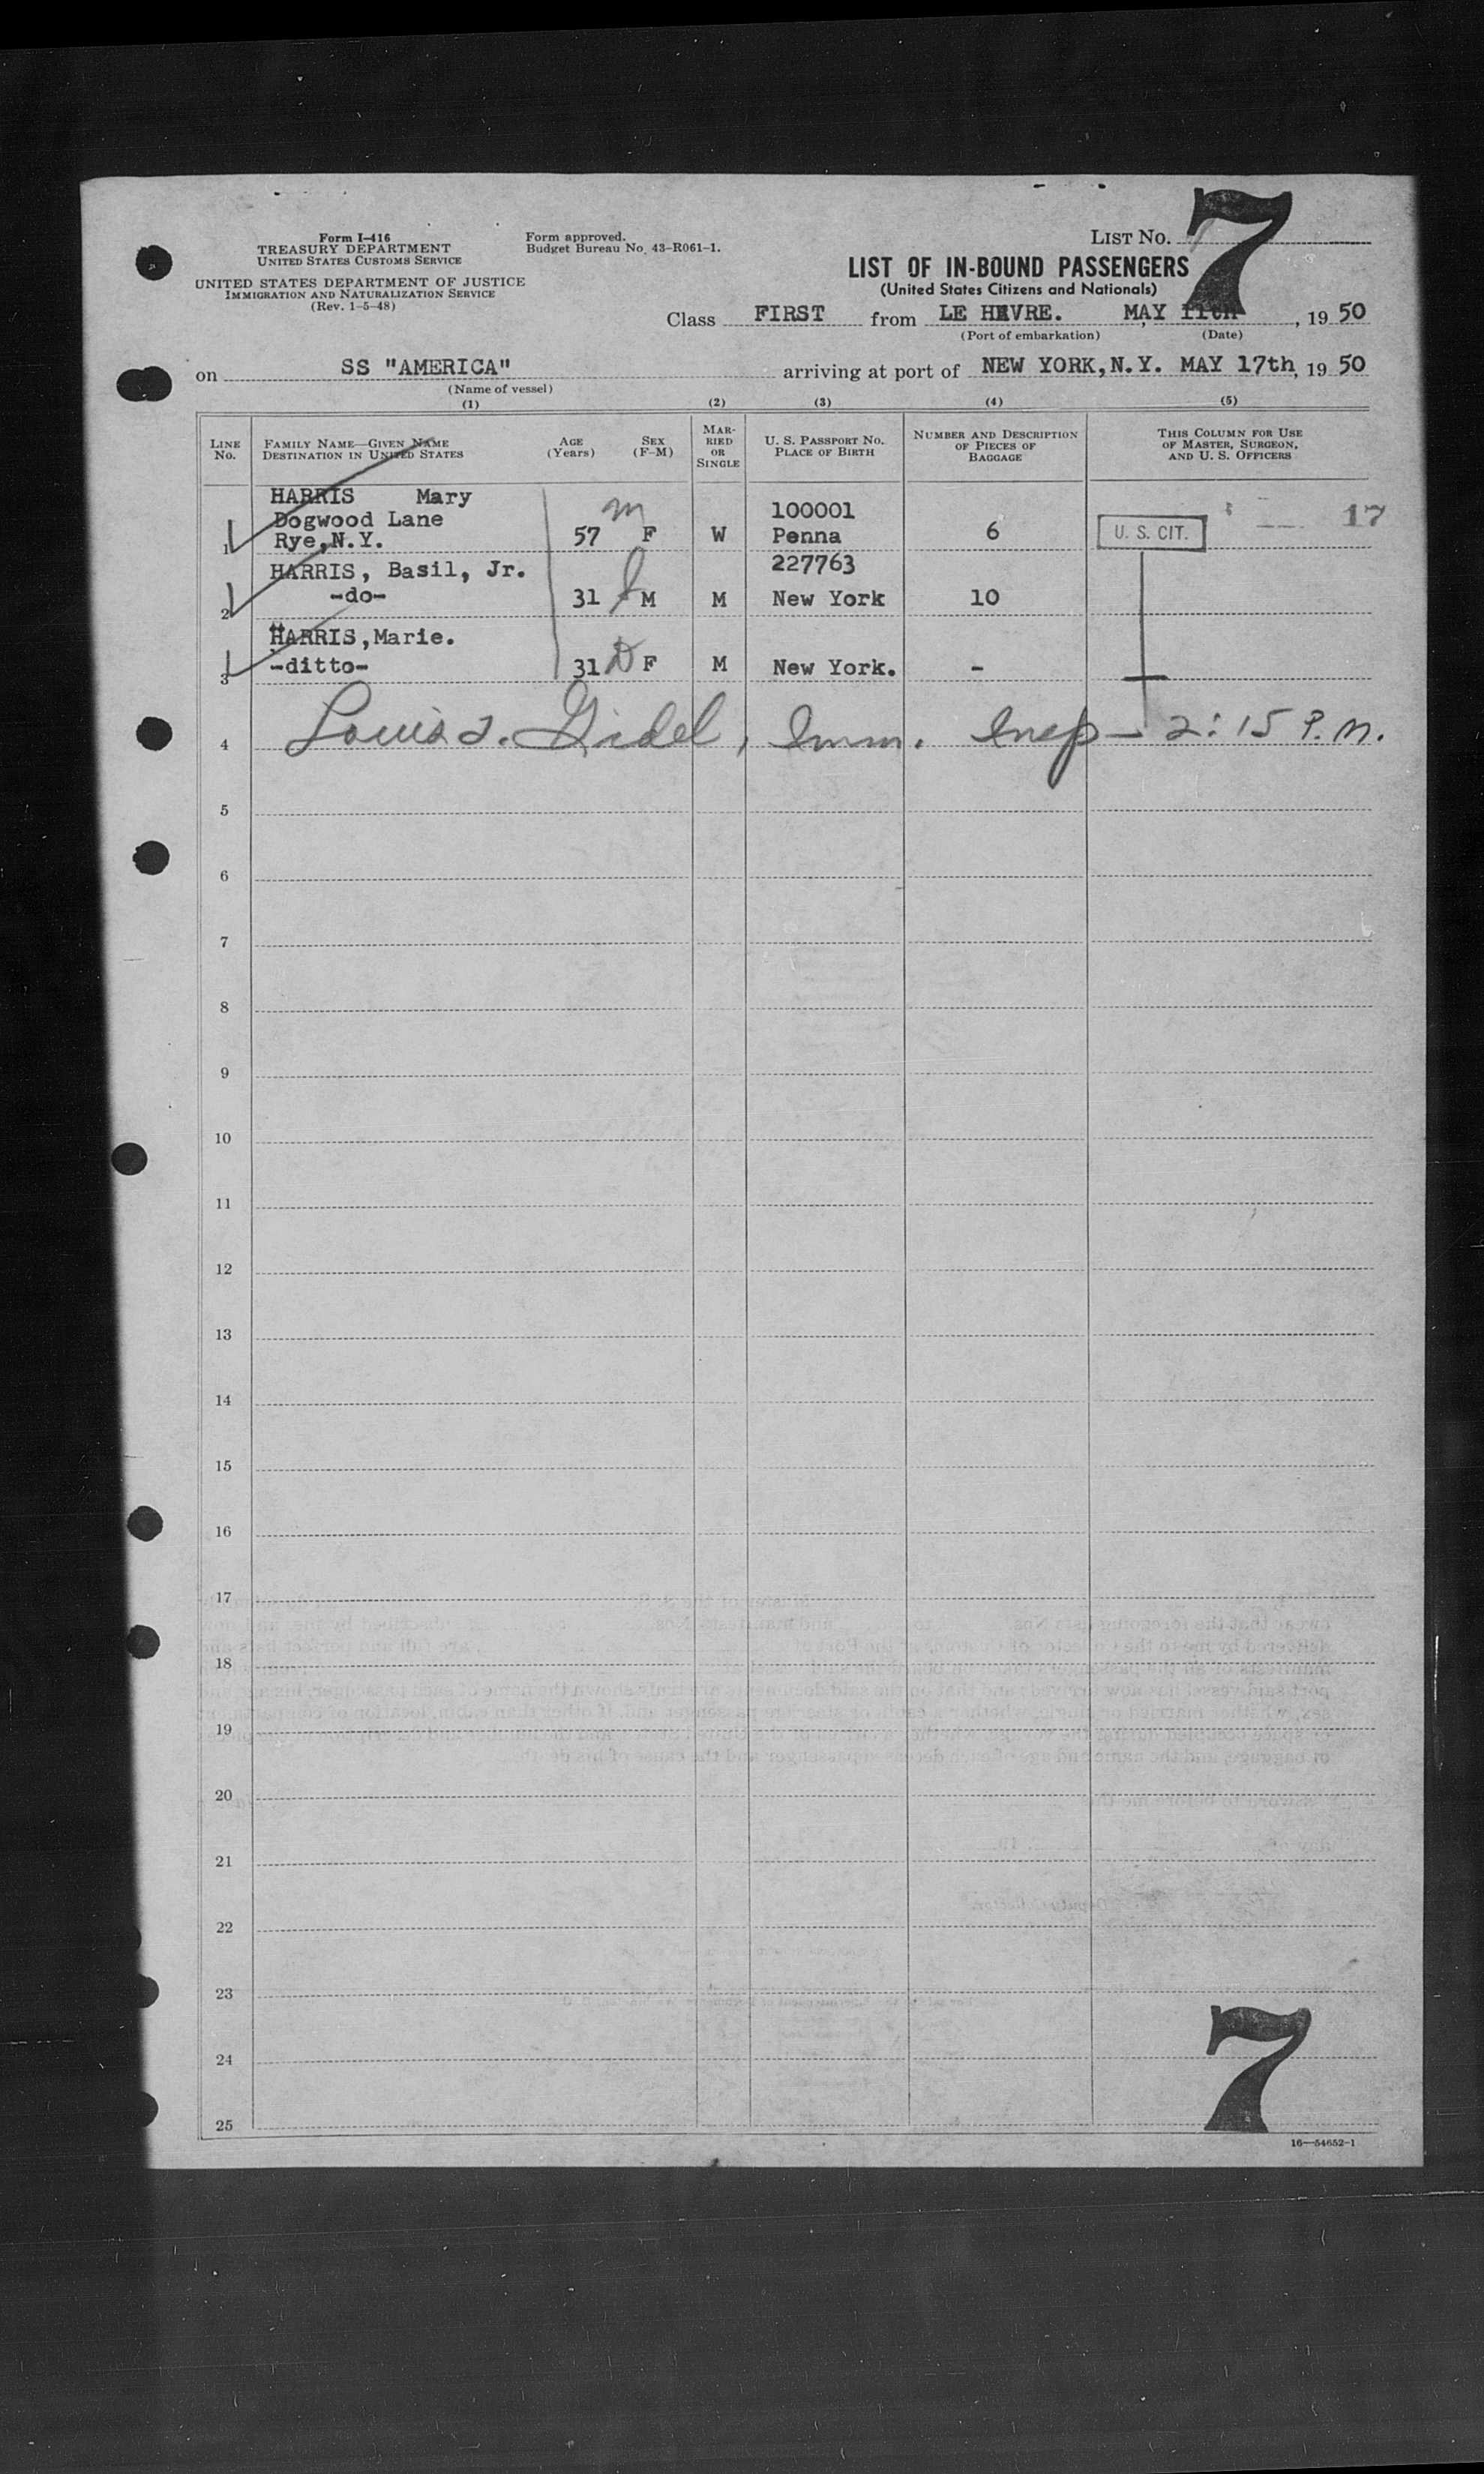 Form I-416
TREASURY DEPARTMENT
UNITED STATES CUSTOMS SERVICE
UNITED STATES DEPARTMENT OF JUSTICE
IMMIGRATION AND NATURALIZATION SERVICE
(Rev. 1-5-48)
Form approved.
Budget Bureau No. 43-R061-1.
LIST NO. 7
LIST OF IN-BOUND PASSENGERS
(United States Citizens and Nationals)
Class FIRST from LE HAVRE. MAY 11th, 19 50
(Port of embarkation) (Date)
on SS "AMERICA" arriving at port of NEW YORK, N.Y. MAY 17th, 19 50
(Name of vessel)
(1) (2) (3) (4) (5)
LINE NO. FAMILY NAME—GIVEN NAME DESTINATION IN UNITED STATES AGE (Years) SEX (F-M) MARRIED OR SINGLE U. S. PASSPORT NO. PLACE OF BIRTH NUMBER AND DESCRIPTION OF PIECES OF BAGGAGE THIS COLUMN FOR USE OF MASTER, SURGEON, AND U. S. OFFICERS
HARRIS Mary m 100001 17
Dogwood Lane
1 Rye, N.Y. 57 F W Penna 6 U. S. CIT.
HARRIS, Basil, Jr. 227763
2 -do- 31 M M New York 10
HARRIS, Marie.
3 -ditto- 31 F M New York. -
4 Gidel, Imm. Insp - 2:15 P.M.
5
6
7
8
9
10
11
12
13
14
15
16
17
18
19
20
21
22
23
24
25
7
16—54652-1